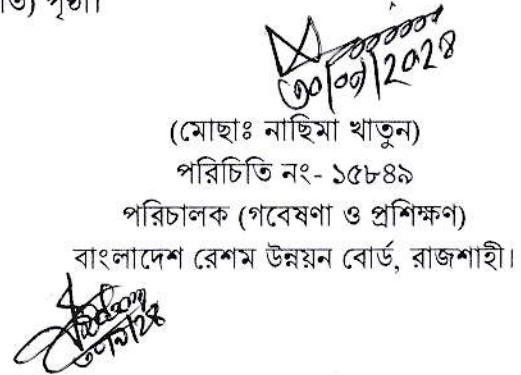 পৃষ্ঠা।
(মোছাঃ নাছিমা খাতুন)
পরিচিতি নং- ১৫৮৪৯
পরিচালক (গবেষণা ও প্রশিক্ষণ)
বাংলাদেশ রেশম উন্নয়ন বোর্ড, রাজশাহী।